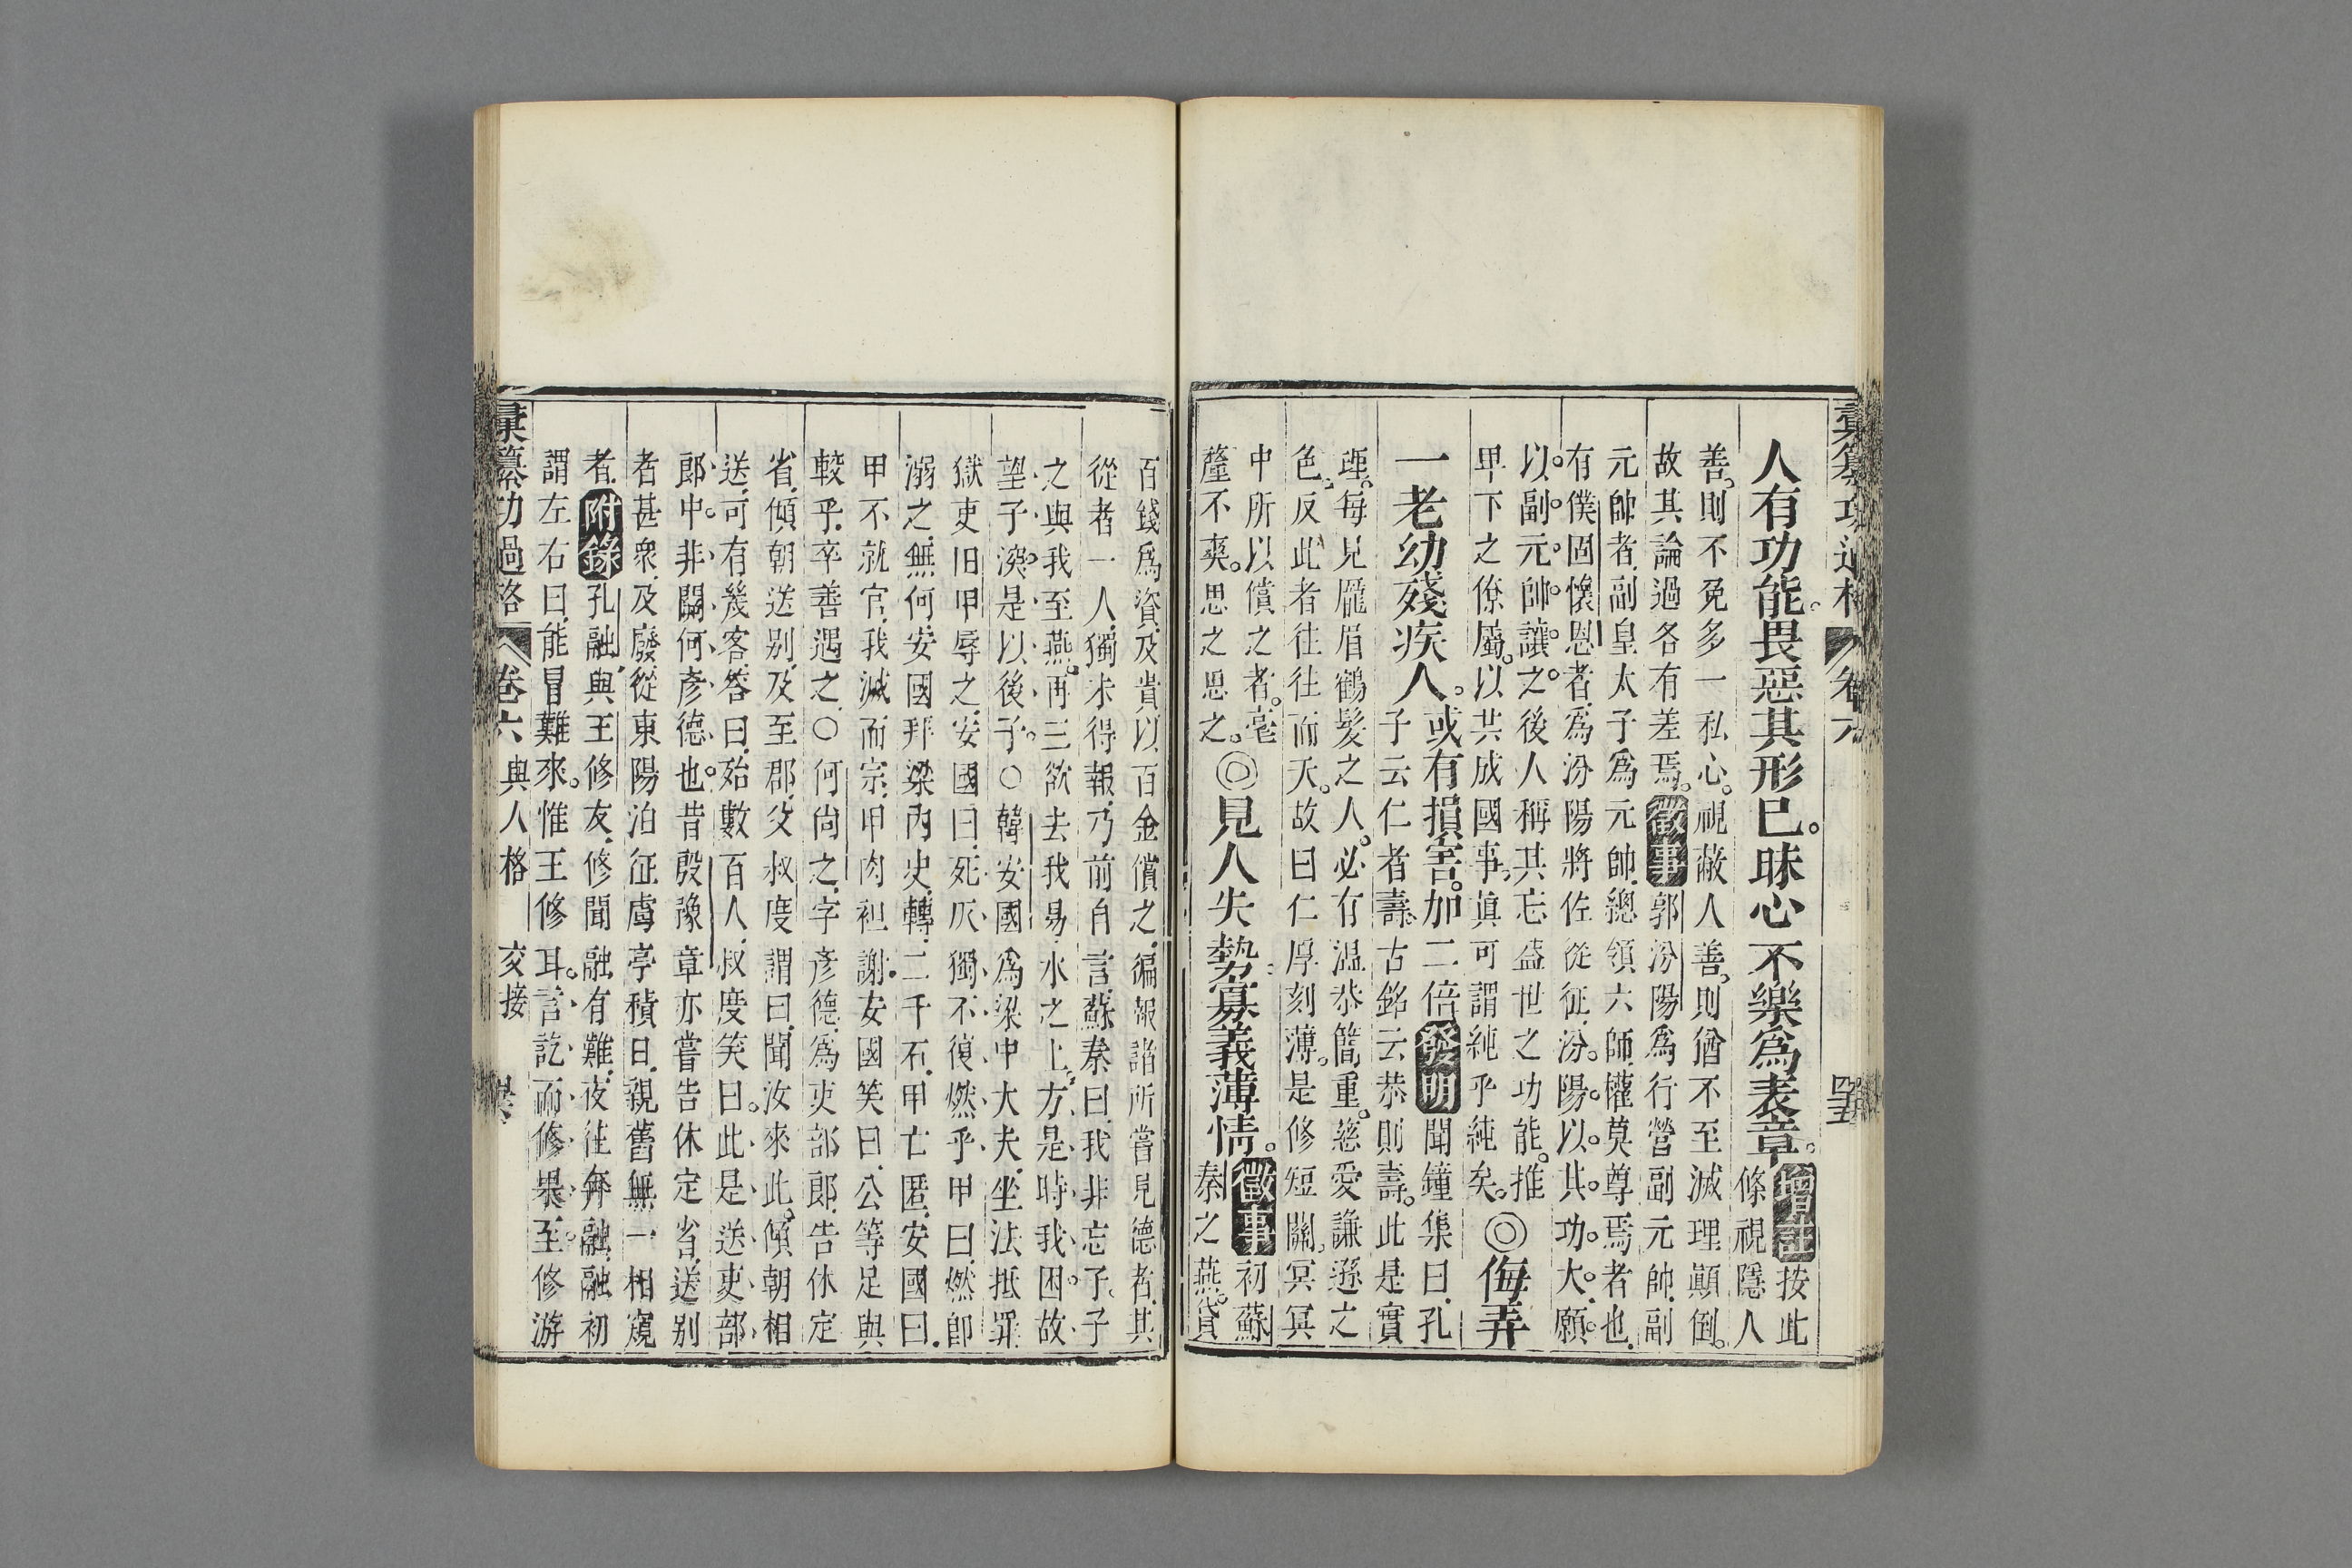 彙纂功過格 卷六 四五
人有功能。畏惡其形已。昧心不樂為表章。增註按此
條視隱人
善。則不免多一私心。視蔽人善。則猶不至滅理顚倒。
故其論過各有差焉。徵事郭汾陽為行營副元帥。副
元帥者。副皇太子為元帥。總領六師。權莫尊焉者也。
有僕固懷恩者。為汾陽將佐。從征。汾陽以其功大。願
以副元帥讓之。後人稱其忘蓋世之功能。推
甲下之僚屬。以共成國事。眞可謂純乎純矣。◎侮弄
一老幼殘疾人。或有損害。加二倍。發明聞鐘集曰。孔
子云仁者壽。古銘云恭則壽。此是實
理。每見龎眉鶴髮之人。必有溫恭簡重。慈愛謙遜之
色。反此者往往而夭。故曰仁厚刻薄。是修短關。冥冥
中所以償之者。毫
釐不爽。思之思之。◎見人失勢。寡義薄情。徵事初蘇
秦之燕。貸
百錢為資。及貴以百金償之。徧報諸所嘗見德者。其
從者一人。獨未得報。乃前自言。蘇秦曰。我非忘子。子
之與我至燕。再三欲去我易水之上。方是時。我困。故
望子深。是以後子。○韓安國為梁中大夫。坐法抵罪。
獄吏田甲辱之。安國曰。死灰獨不復燃乎。甲曰。燃卽
溺之。無何。安國拜梁內史。轉二千石。甲亡匿。安國曰。
甲不就官。我滅而宗。甲肉袒謝。安國笑曰。公等足與
較乎。卒善遇之。○何尙之。字彥德。為吏部郎。告休定
省。傾朝送別。及至郡。父叔度謂曰。聞汝來此。傾朝相
送。可有幾客。答曰。殆數百人。叔度笑曰。此是送吏部
郎中。非關何彥德也。昔殷豫章亦嘗告休定省。送別
者甚衆。及廢。從東陽泊征虜亭積日。親舊無一相窺
者。附錄孔融與王修友。修聞融有難。夜往奔融。融初
謂左右曰。能冒難來。惟王修耳。言訖而修果至。修游
彙纂功過格 卷六 與人格 交接